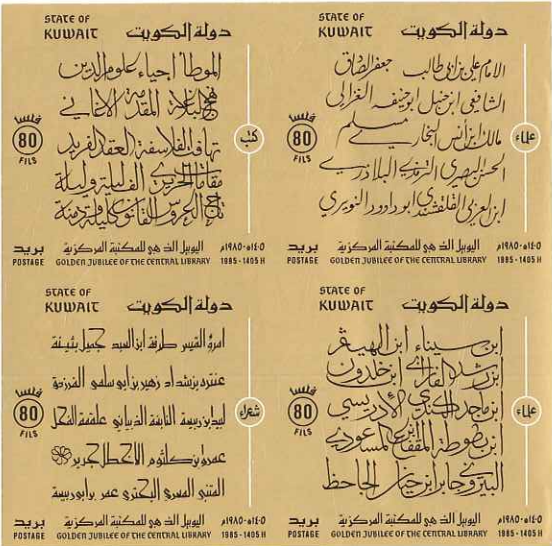 STATE OF
KUWAIT دولة الكويت
الموطأ إحياء علوم الدين
نهج البلاغة المقدمة الأغاني
تهافت الفلاسفة العقد الفريد
مقامات الحريري ألف ليلة وليلة
تاج العروس القانون كليلة ودمنة
فلسا
80
FILS
كتب
بريد اليوبيل الذهبي للمكتبة المركزية ١٩٨٥م - ١٤٠٥هـ
POSTAGE GOLDEN JUBILEE OF THE CENTRAL LIBRARY 1985 - 1405 H
STATE OF
KUWAIT دولة الكويت
الامام علي بن ابي طالب جعفر الصادق
الشافعي ابن حنبل ابو حنيفه الغزالي
مالك ابن أنس البخاري مسلم
الحسن البصري الترمذي البلاذري
ابن العربي القلقشندي ابو داوود النويري
فلسا
80
FILS
علماء
بريد اليوبيل الذهبي للمكتبة المركزية ١٩٨٥م - ١٤٠٥هـ
POSTAGE GOLDEN JUBILEE OF THE CENTRAL LIBRARY 1985 - 1405 H
STATE OF
KUWAIT دولة الكويت
امرؤ القيس طرفة ابن العبد جميل بثينة
عنترة بن شداد زهير بن ابي سلمى الفرزدق
لبيد بن ربيعة النابغة الذبياني علقمة الفحل
عمرو بن كلثوم الأخطل جرير
المتنبي المعري البحتري عمر بن ابي ربيعة
فلسا
80
FILS
شعراء
بريد اليوبيل الذهبي للمكتبة المركزية ١٩٨٥م - ١٤٠٥هـ
POSTAGE GOLDEN JUBILEE OF THE CENTRAL LIBRARY 1985 - 1405 H
STATE OF
KUWAIT دولة الكويت
ابن سيناء ابن الهيثم
ابن رشد الفارابي ابن خلدون
ابن ماجد الكندي الإدريسي
ابن بطوطة ابن المقفع المسعودي
البيروني جابر ابن حيان الجاحظ
فلسا
80
FILS
علماء
بريد اليوبيل الذهبي للمكتبة المركزية ١٩٨٥م - ١٤٠٥هـ
POSTAGE GOLDEN JUBILEE OF THE CENTRAL LIBRARY 1985 - 1405 H